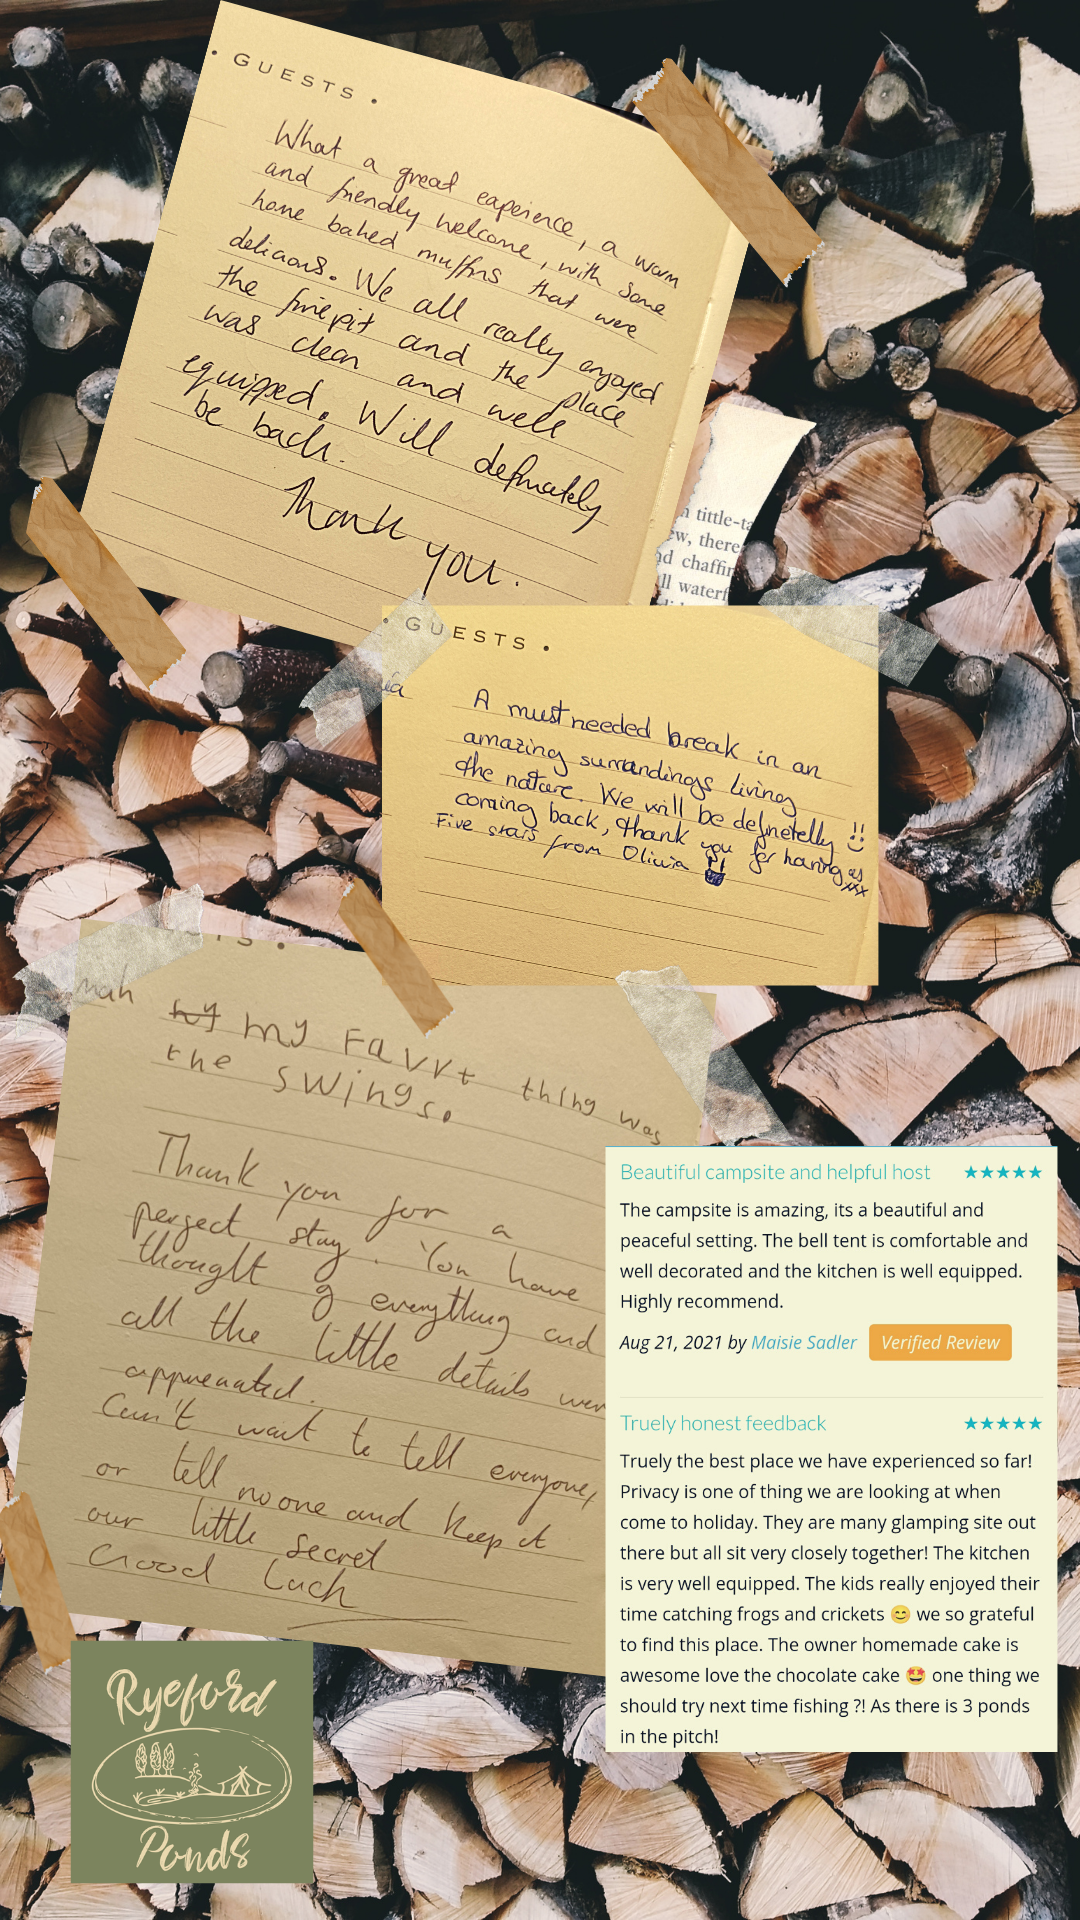 • GUESTS •
What a great experience, a warm
and friendly welcome, with some
home baked muffins that were
delicious. We all really enjoyed
the firepit and the place
was clean and well
equipped. Will definately
be back.
Thank
you.
n tittle-ta
ew, there
nd chaffin
ll waterf
• GUESTS •
A must needed break in an
amazing surrandings living
the nature. We will be definetelly
coming back, thank you for having us
Five stars from Oliwia xxx
TS •
nah
my my Favrt thing was
the swings.
Thank you for a
perfect stay. You have
thought of everything and
all the little details wer
appreciated.
Can't wait to tell everyone,
or tell no one and keep it
our little secret
Good Luck
Beautiful campsite and helpful host ★★★★★
The campsite is amazing, its a beautiful and
peaceful setting. The bell tent is comfortable and
well decorated and the kitchen is well equipped.
Highly recommend.
Aug 21, 2021 by Maisie Sadler Verified Review
Truely honest feedback ★★★★★
Truely the best place we have experienced so far!
Privacy is one of thing we are looking at when
come to holiday. They are many glamping site out
there but all sit very closely together! The kitchen
is very well equipped. The kids really enjoyed their
time catching frogs and crickets 😊 we so grateful
to find this place. The owner homemade cake is
awesome love the chocolate cake 🤩 one thing we
should try next time fishing ?! As there is 3 ponds
in the pitch!
Ryeford
Ponds